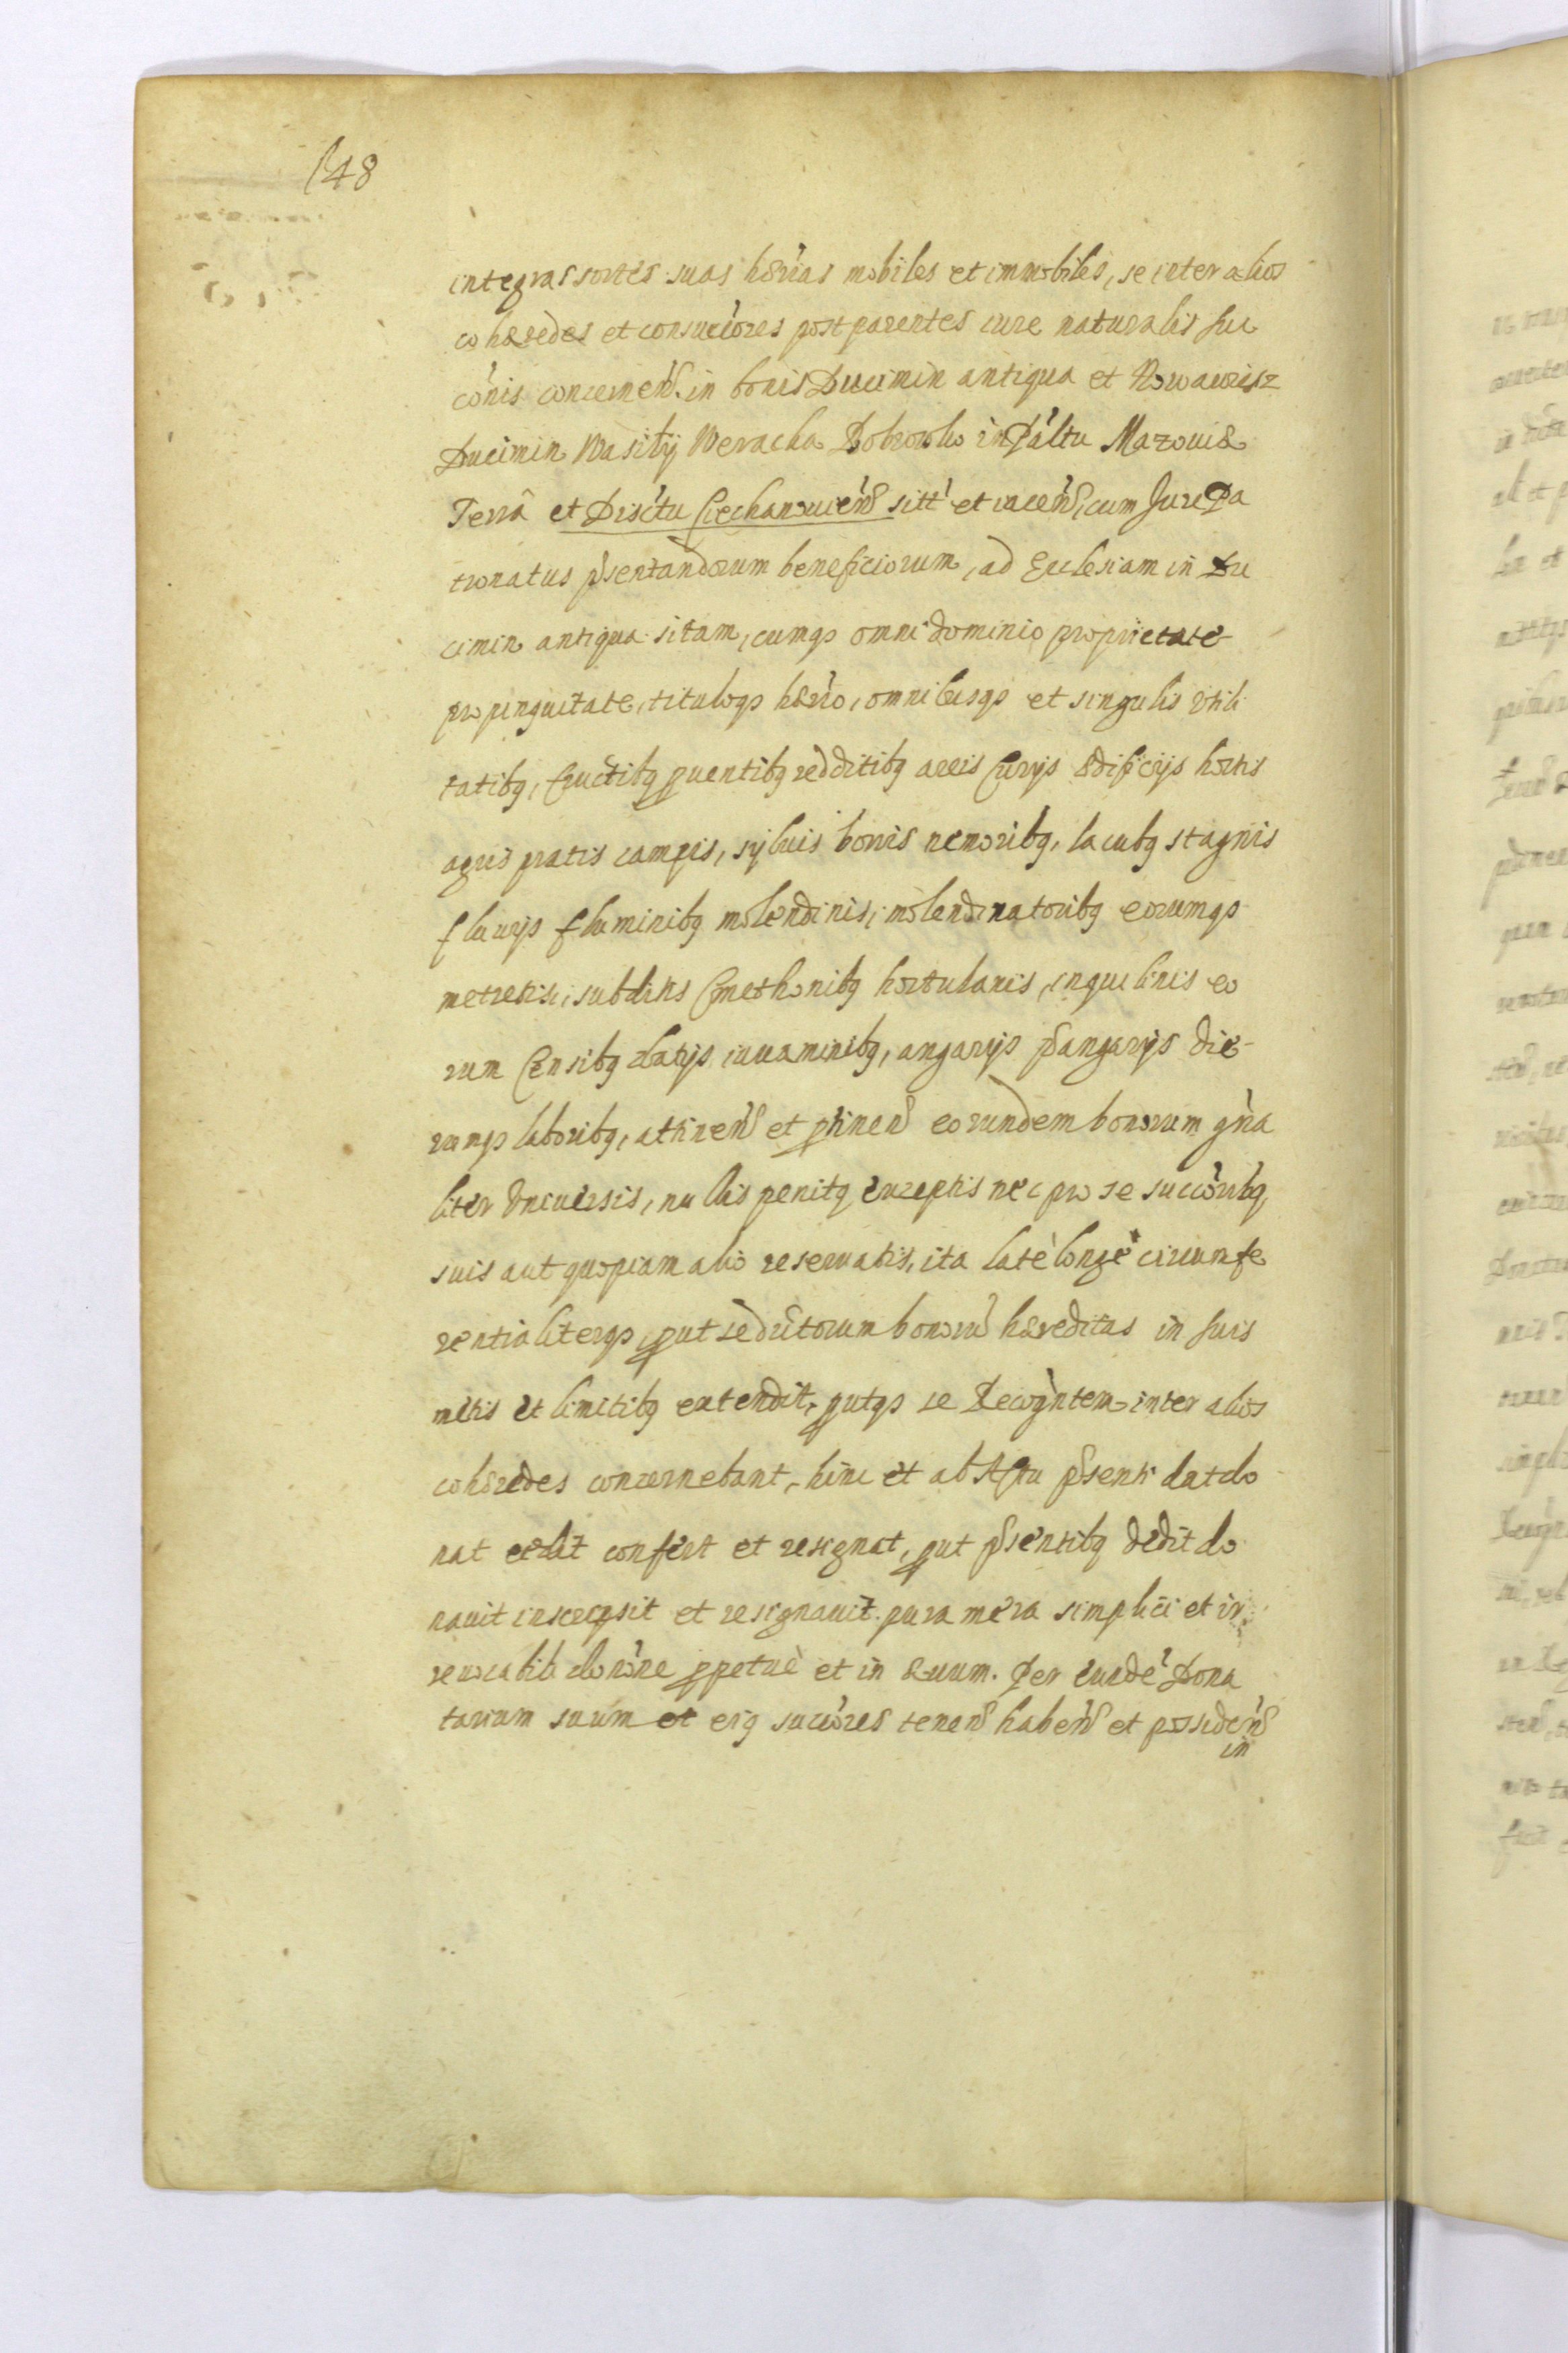 148
integras sortes suas hærias mobiles et immobiles, se inter alios
cohæredes et consuccores post parentes iure naturalis suc
conis concernen. in bonis Ducimin antiqua et Nowawiesz
Ducimin Wasiły Weracha Dobrowko in Paltu Mazouiæ
Terrâ et Disctu Ciechanouien sitt et iacen, cum Jure Pa
tronatus psentandorum beneficiorum, ad Ecclesiam in Du
cimin antiqua sitam, cumqs omni dominio proprietate
propinquitate, tituloqs hærio, omnibusqs et singulis vtili
tatibq, fructibq puentibq redditibq areis Curijs ædificijs hortis
agris pratis campis, syluis borris nemoribq, lacubq stagnis
fluuijs fluminibq molendinis, molendinatoribq eorumqs
metretis, subditis Cmethonibq hortulanis, inquilinis eo
rum Censibq datijs iuuaminibq, angarijs pangarijs die-
rumqs laboribq, attinen et ptinen eorundem bonorum gna
liter vniuersis, nullis penitq exceptis nec pro se succoribq
suis aut quopiam alio reseruatis, ita latè longè circumfe
rentialiterqs, put sedictorum bonoru hæreditas in suis
metis et limitibq extendit, putqs se Recogntem inter alios
cohæredes concernebant, hinc et ab Actu psenti dat do
nat cedit confert et resignat, put psentibq dedit do
nauit inscripsit et resignauit pura mera simplici et ir
reuocabili donone ppetuè et in æuum. Per eunde Dona
tarium suum et eiq succores tenen haben et possiden
in